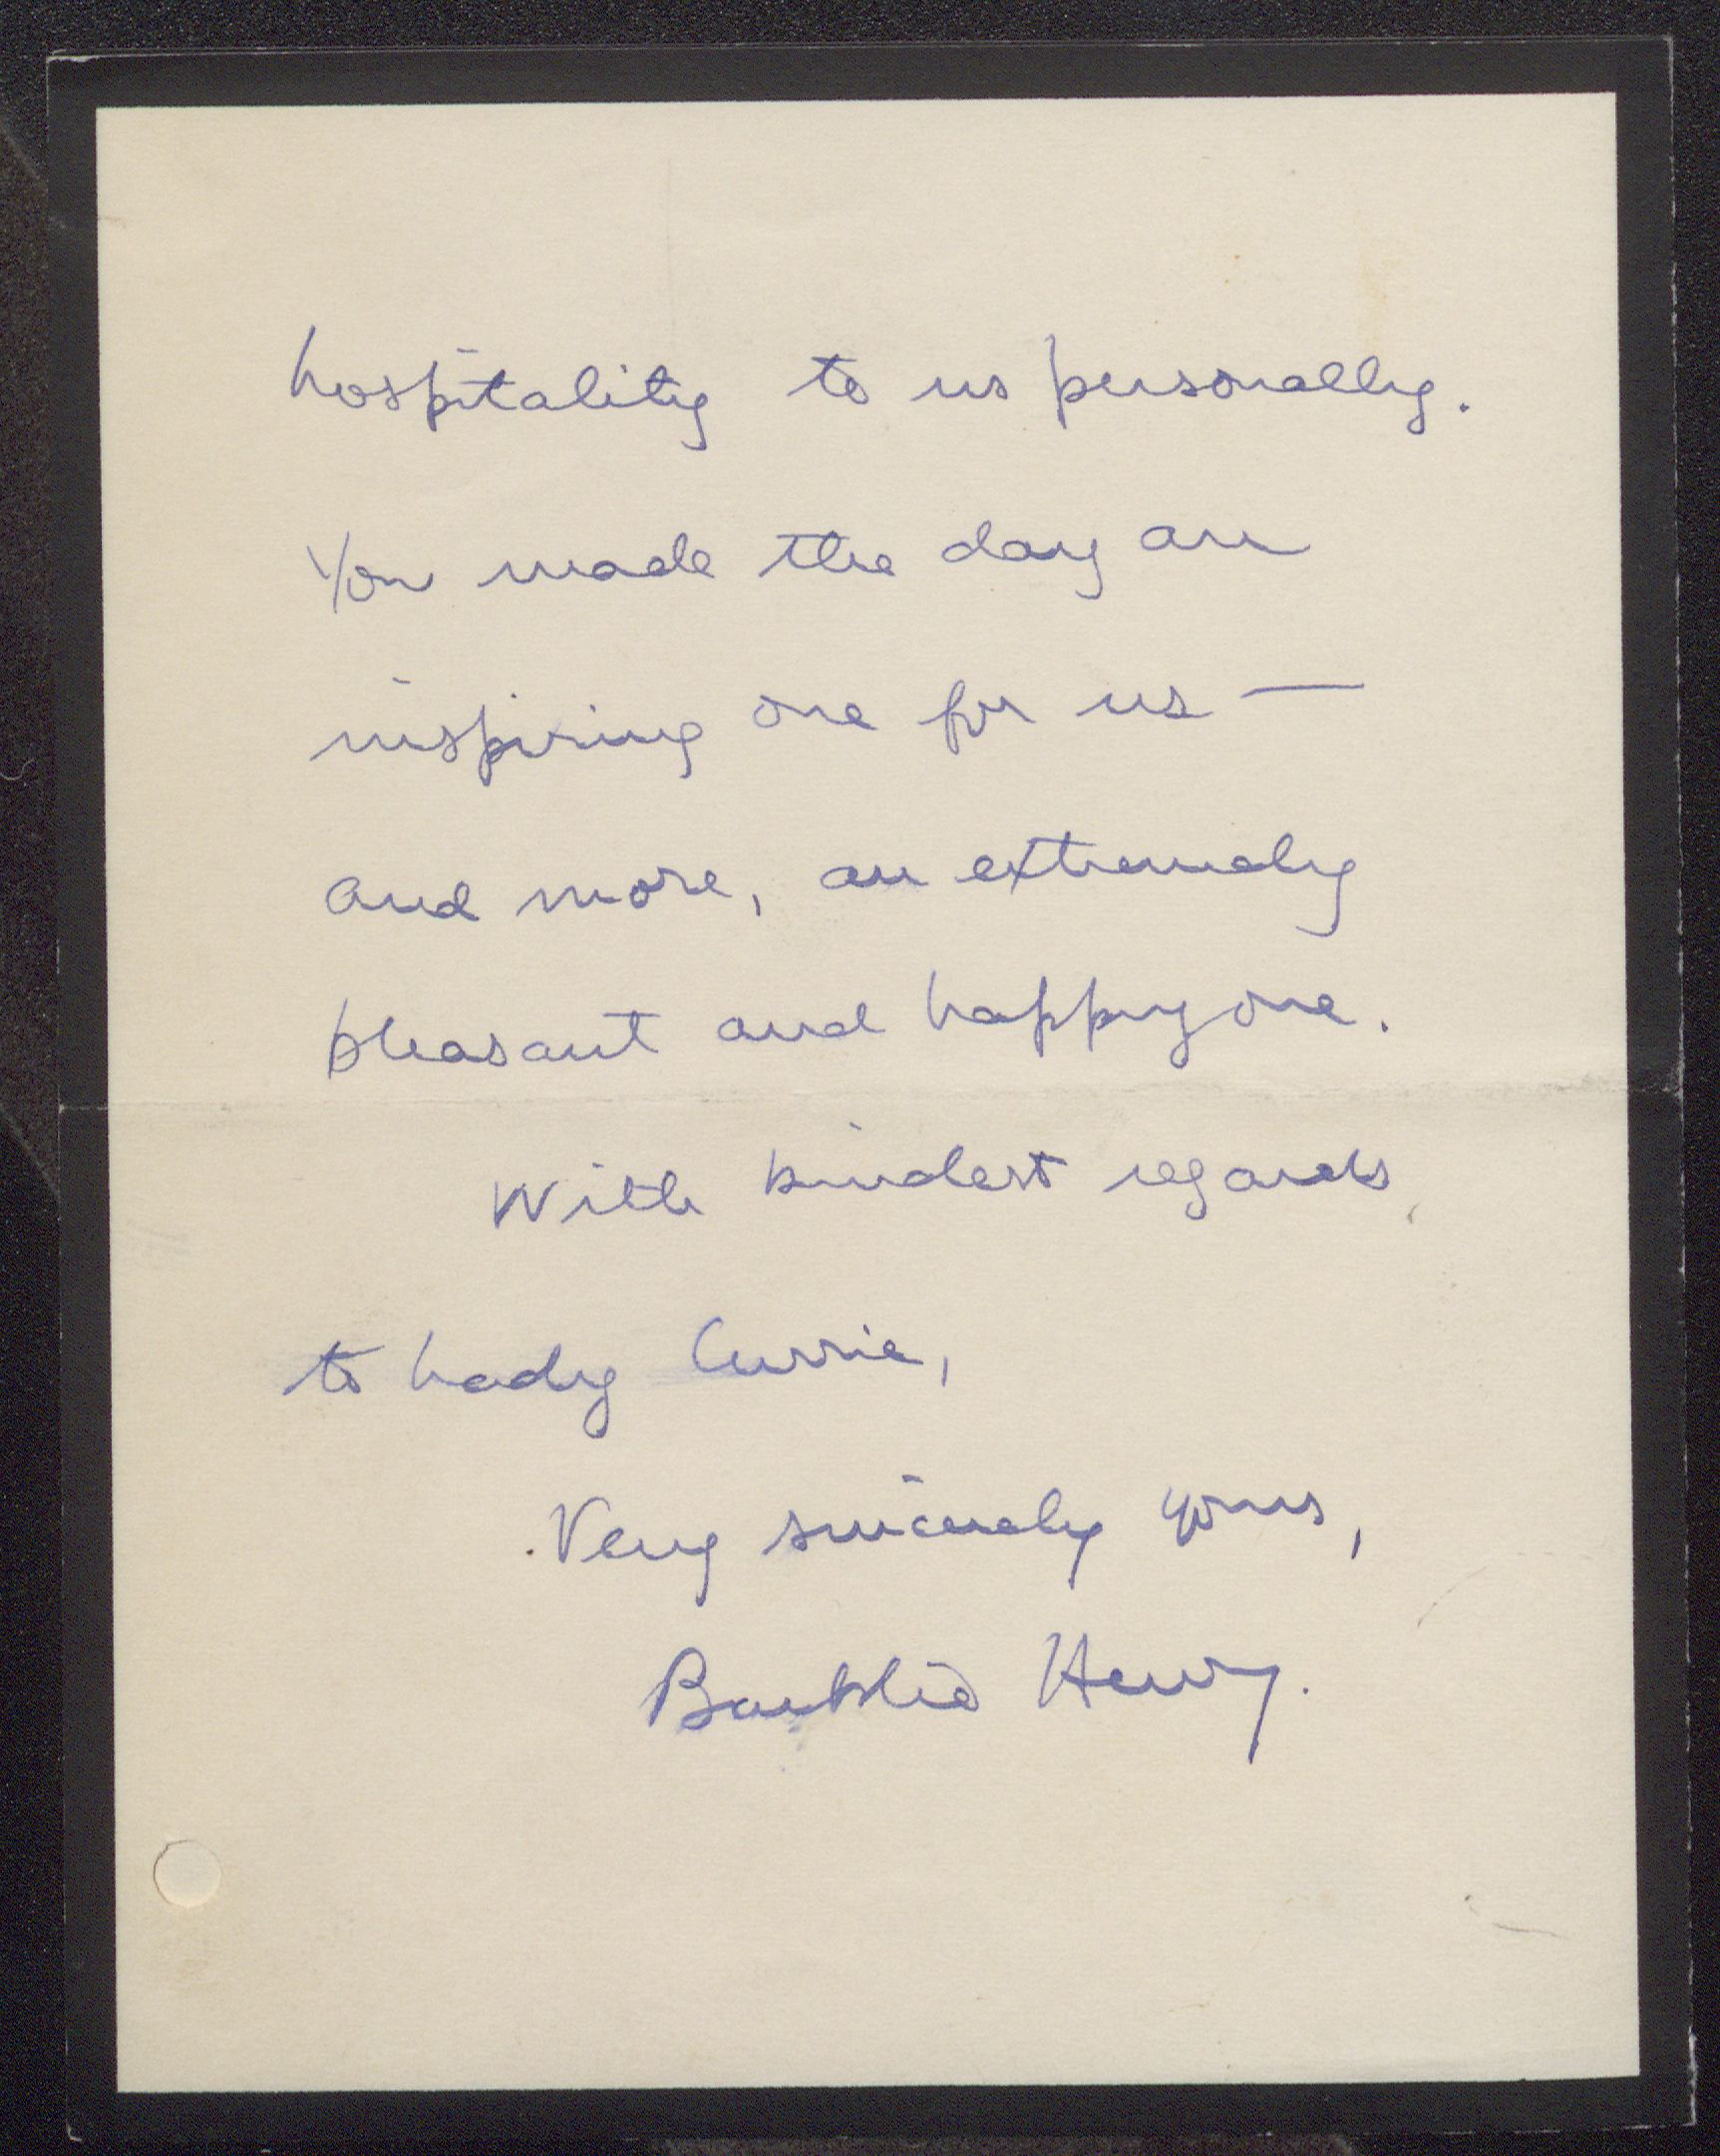 hospitality to us personally.
You made the day an
inspiring one for us —
and more, an extremely
pleasant and happy one.
With kindest regards
to Lady Currie,
Very sincerely yours,
Barklie Henry.